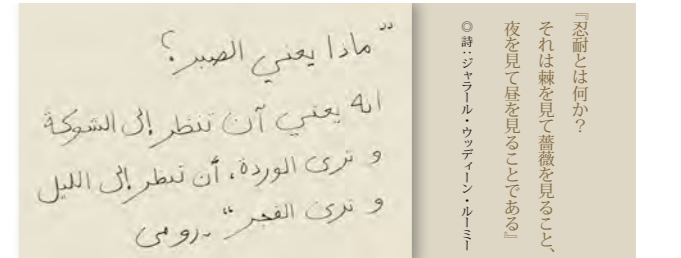 "ماذا يعني الصبر؟
انه يعني آن تنظر إلى الشوكة
و ترى الوردة، أن تنظر إلى الليل
و ترى الفجر" ـ رومي
『忍耐とは何か？
それは棘を見て薔薇を見ること、
夜を見て昼を見ることである』
◎詩：ジャラール・ウッディーン・ルーミー